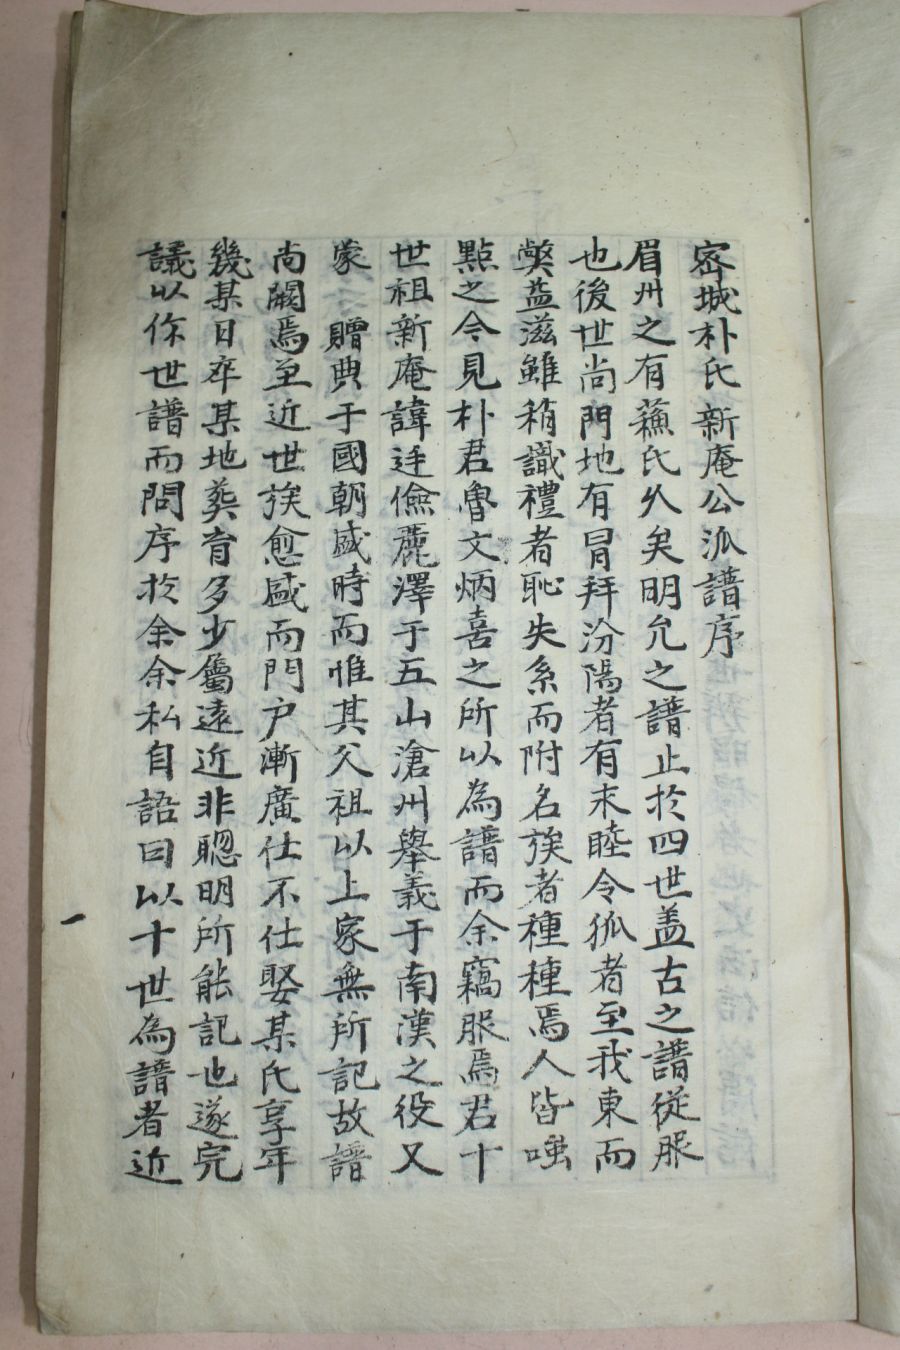 密城朴氏新庵公派譜序
眉州之有蘓氏久矣明允之譜止於四世盖古之譜從服
也後世尚門地有冐拜汾陽者有末睦令狐者至我東而
弊益滋雖稍識禮者恥失系而附名族者種種焉人皆嗤
點之今見朴君魯文炳喜之所以為譜而余竊服焉君十
世祖新庵諱廷儉麗澤于五山滄州舉義于南漢之役又
蒙 贈典于國朝盛時而惟其父祖以上家無所記故譜
尚闕焉至近世族愈盛而門户漸廣仕不仕娶某氏享年
幾某日卒某地葬育多少屬遠近非聦明所能記也遂完
議以你世譜而問序於余余私自語曰以十世為譜者近